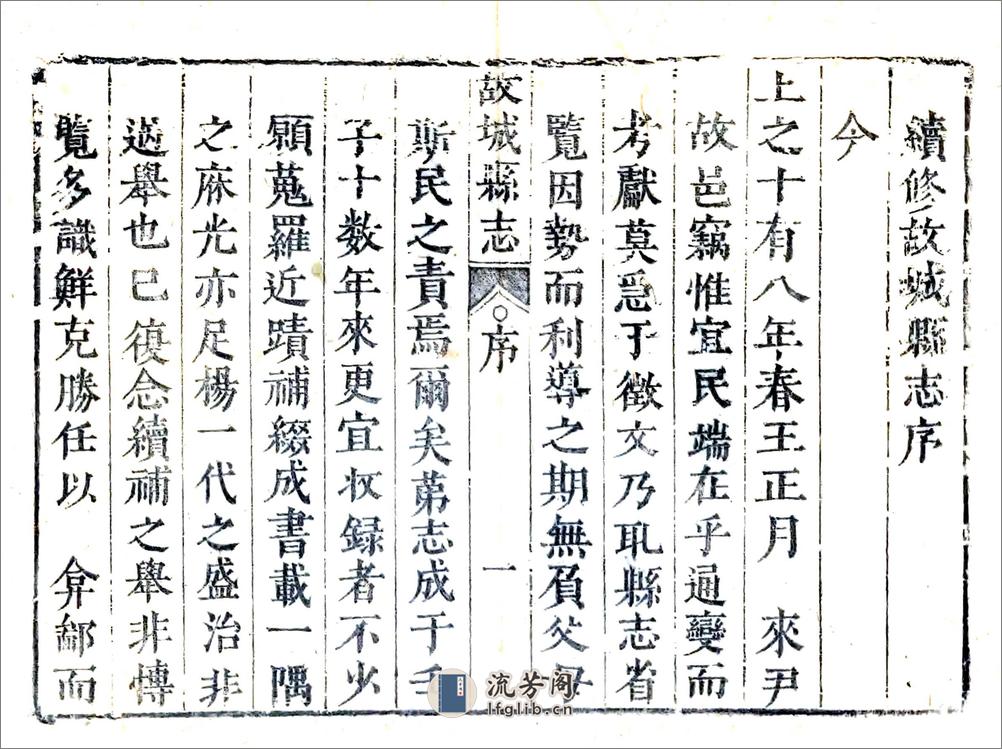 續修故城縣志序
今
上之十有八年春王正月　來尹
故邑竊惟宜民端在乎通變而
考獻莫急于徵文乃取縣志省
覽因勢而利導之期無負父母
故城縣志　序　一
斯民之責焉爾矣苐志成于壬
子十数年來更宜收録者不少
願蒐羅近蹟補綴成書載一隅
之庥光亦足楊一代之盛治非
遄舉也已復念續補之舉非慱
覽多識鮮克勝任以　弇鄙而
流芳阁
lfglib.cn